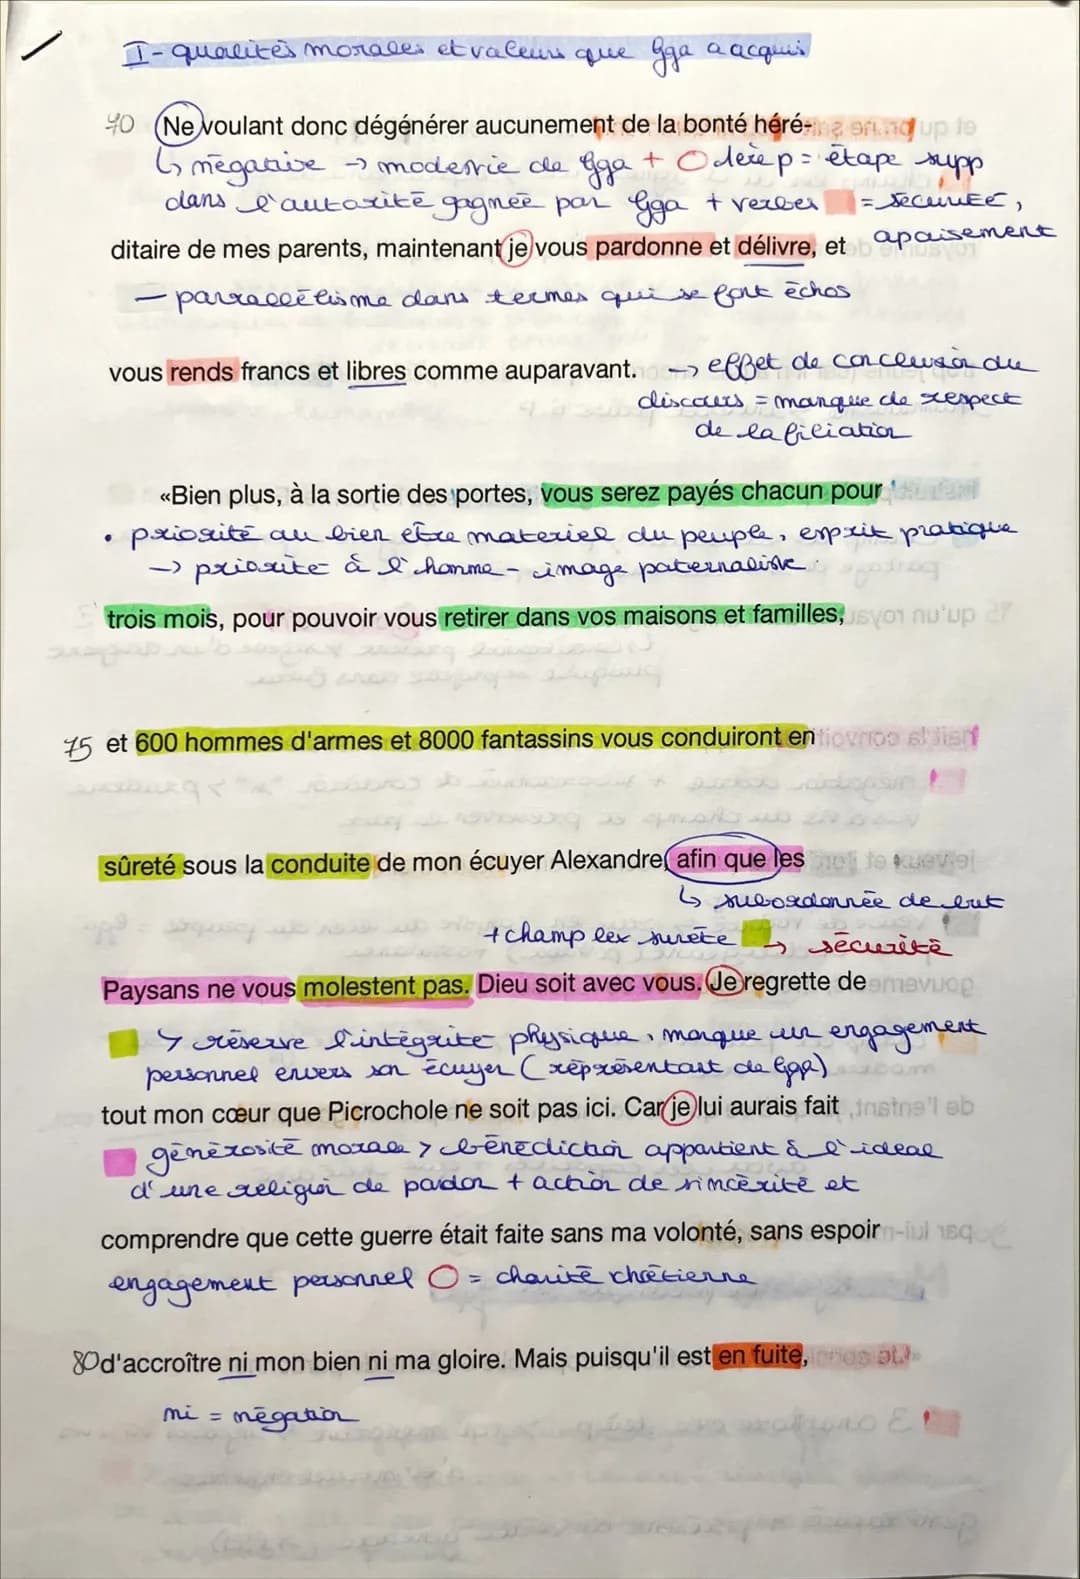 I - qualités morales et valeurs que Gga a acquis
70 Ne voulant donc dégénérer aucunement de la bonté héré-
↳ négative → modestie de Gga + O 1ère p = étape supp
dans l'autorité gagnée par Gga + verbes = sécurité,
apaisement
ditaire de mes parents, maintenant je vous pardonne et délivre, et
- parallélisme dans termes qui se font échos
vous rends francs et libres comme auparavant. → effet de conclusion du
discours = manque de respect
de la filiation
«Bien plus, à la sortie des portes, vous serez payés chacun pour
• priorité au bien être materiel du peuple, esprit pratique
→ priorité à l'homme - image paternaliste.
trois mois, pour pouvoir vous retirer dans vos maisons et familles,
75 et 600 hommes d'armes et 8000 fantassins vous conduiront en
sûreté sous la conduite de mon écuyer Alexandre, afin que les
↳ subordonnée de but
+ champ lex sureté → sécurité
Paysans ne vous molestent pas. Dieu soit avec vous. Je regrette de
↳ réserve l'intégrité physique, marque un engagement
personnel envers son écuyer (représentant de Gga)
tout mon cœur que Picrochole ne soit pas ici. Car je lui aurais fait
générosité morale > bénédiction appartient à l'idéal
d'une religion de pardon + action de sincérité et
comprendre que cette guerre était faite sans ma volonté, sans espoir
engagement personnel O = charité chrétienne
80 d'accroître ni mon bien ni ma gloire. Mais puisqu'il est en fuite,
ni = négation